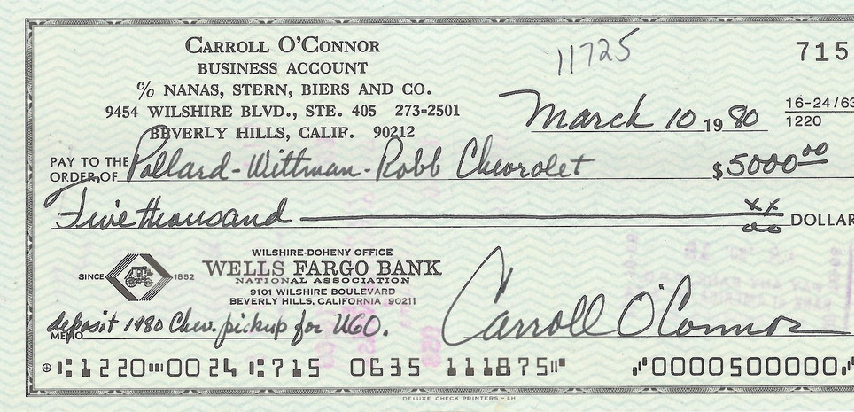 CARROLL O'CONNOR
BUSINESS ACCOUNT
℅ NANAS, STERN, BIERS AND CO.
9454 WILSHIRE BLVD., STE. 405 273-2501
BEVERLY HILLS, CALIF. 90212
11725
715
March 10 1980
16-24/63
1220
PAY TO THE ORDER OF Pollard-Wittman-Robb Chevrolet $5000 00
Five thousand xx/00 DOLLAR
WILSHIRE-DOHENY OFFICE
SINCE 1852 WELLS FARGO BANK
NATIONAL ASSOCIATION
9101 WILSHIRE BOULEVARD
BEVERLY HILLS, CALIFORNIA 90211
MEMO deposit 1980 Chev. pickup for UGO.
Carroll O'Connor
⑆1220⑉0024⑆715 0635 111875⑈ ⑈0000500000⑈
DELUXE CHECK PRINTERS - 1H